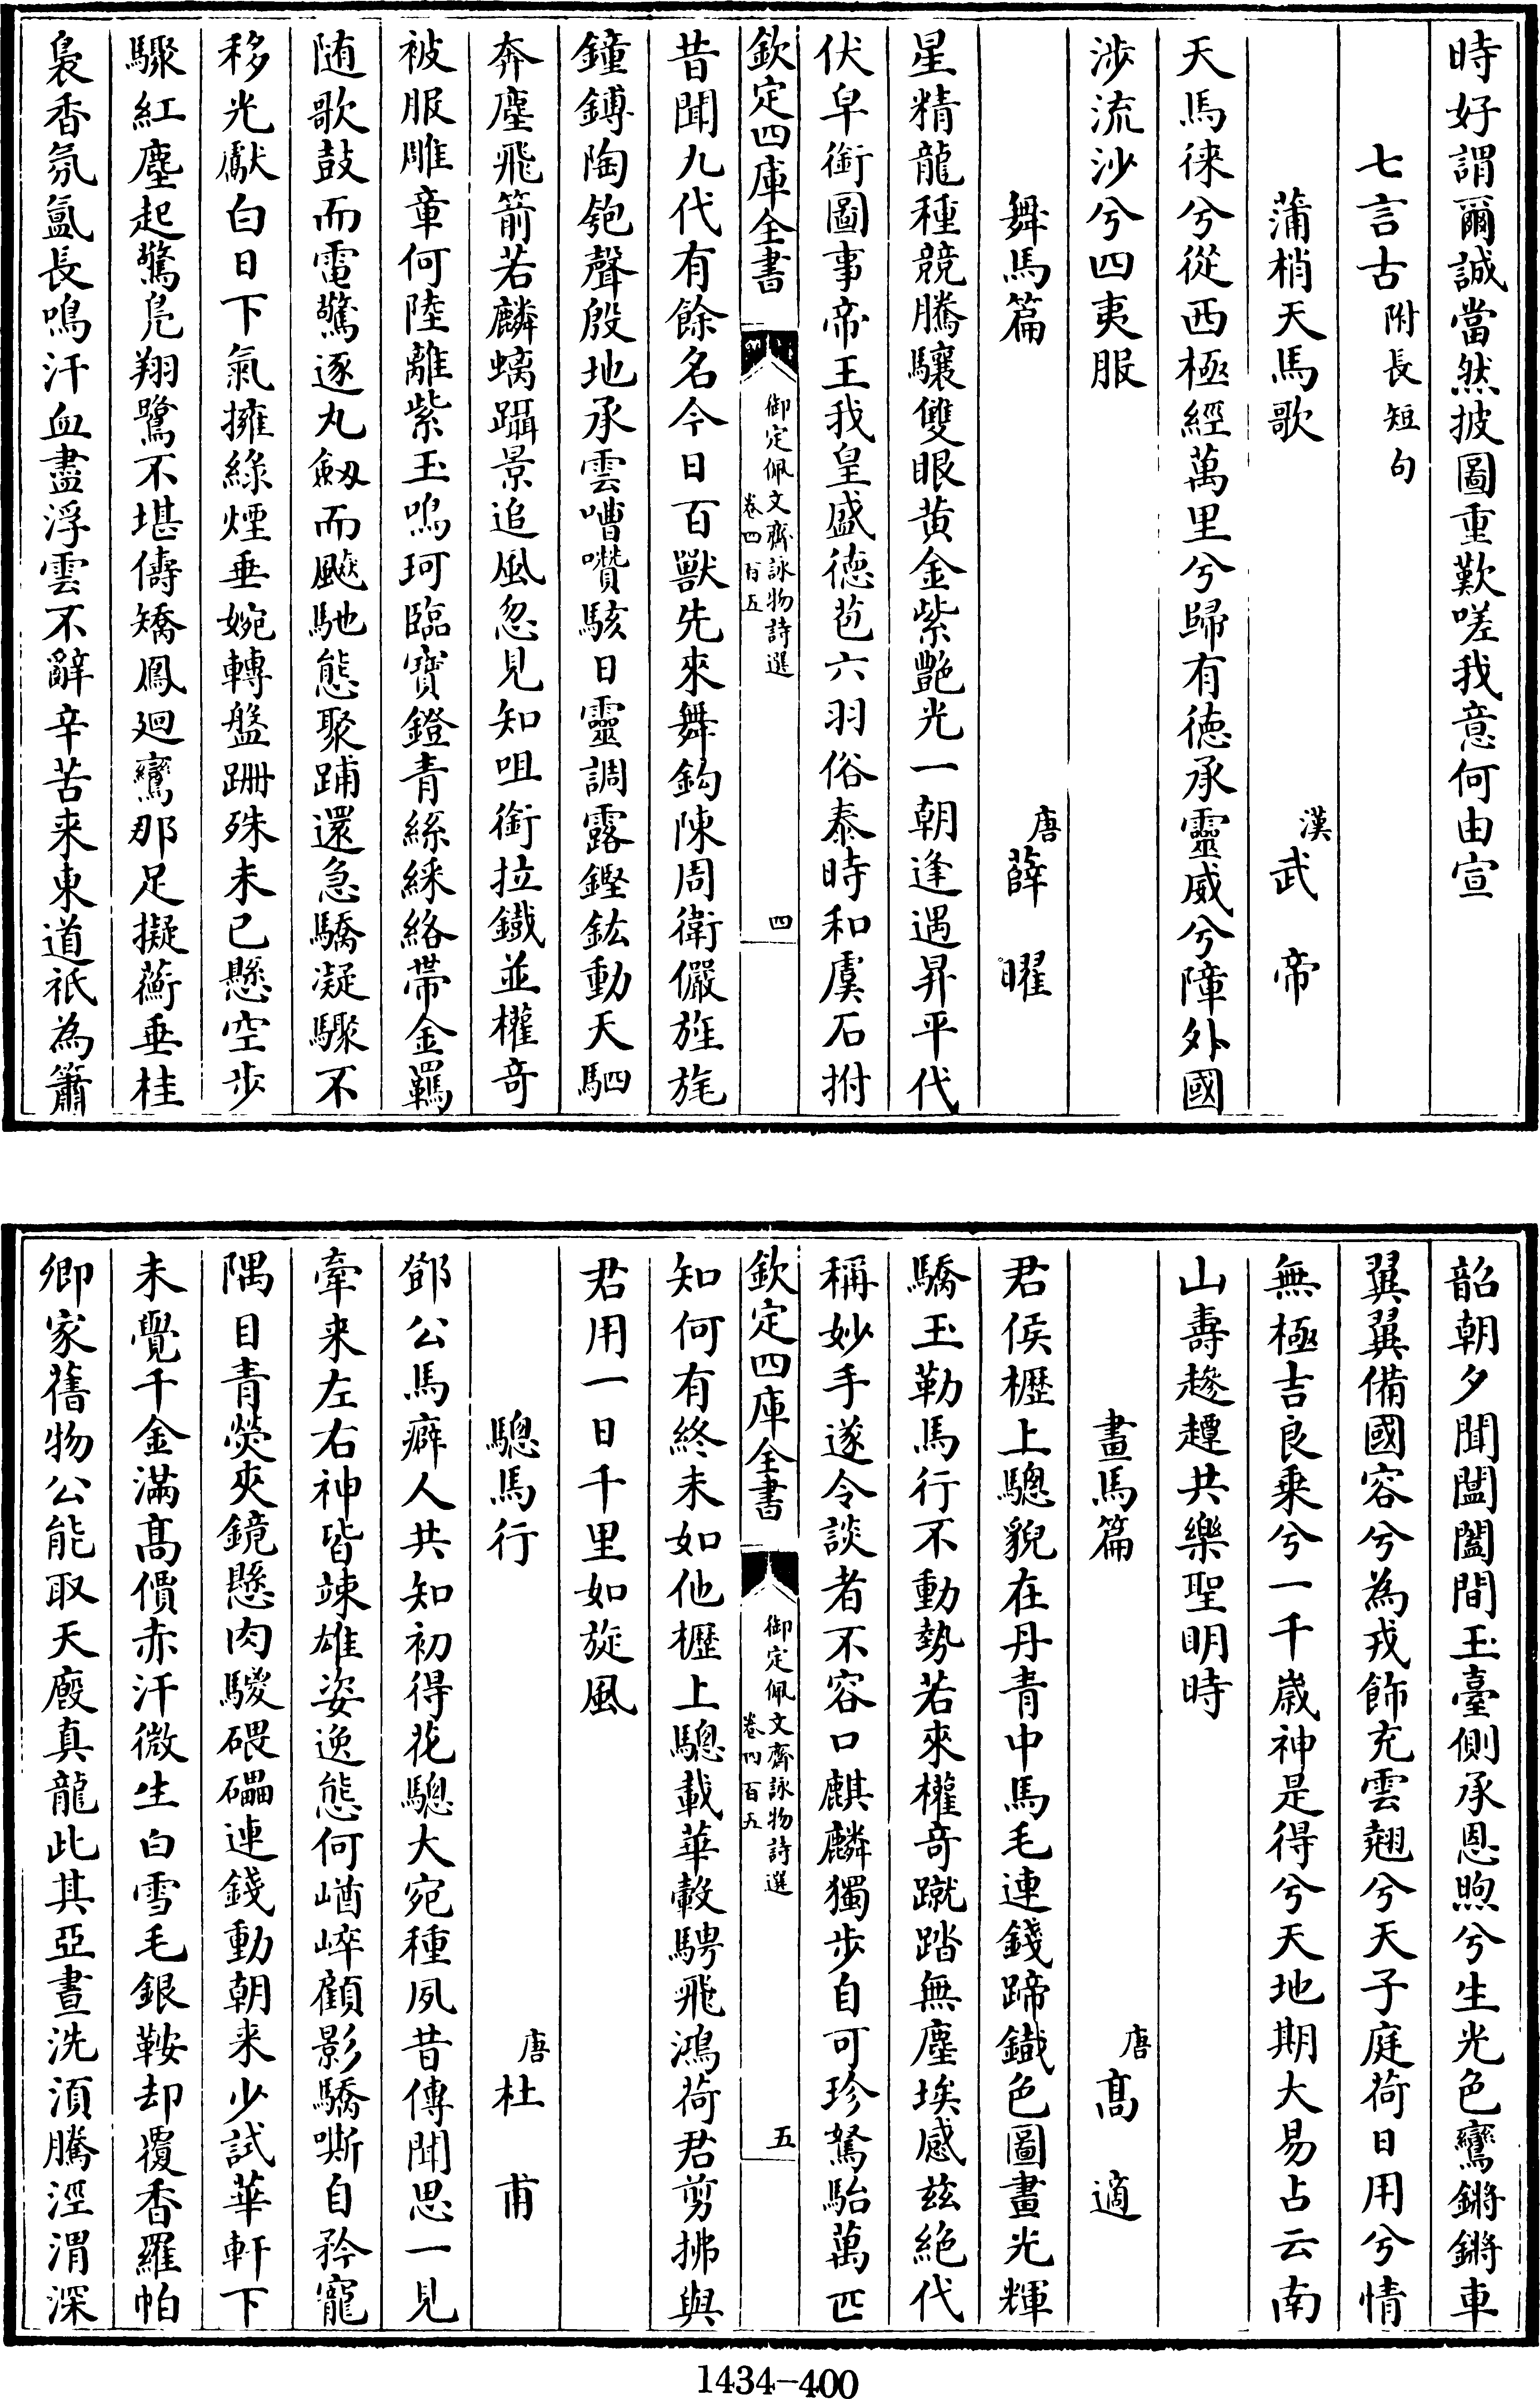 時好謂爾誠當然披圖重歎嗟我意何由宣
七言古附長短句
蒲梢天馬歌 漢武帝
天馬徠兮從西極經萬里兮歸有徳承靈威兮障外國
涉流沙兮四夷服
舞馬篇 唐薛曜
星精龍種競騰驤雙眼黄金紫艶光一朝逢遇昇平代
伏皁銜圖事帝王我皇盛徳苞六羽俗泰時和虞石拊
欽定四庫全書 御定佩文齋詠物詩選 卷四百五 四
昔聞九代有餘名今日百獸先來舞鈎陳周衛儼旌旄
鐘鎛陶匏聲殷地承雲嘈囋駭日靈調露鏗鈜動天駟
奔塵飛箭若麟螭躡景追風忽見知咀銜拉鐵並權奇
被服雕章何陸離紫玉鳴珂臨寶鐙青絲綵絡帶金羈
随歌鼓而電驚逐丸劔而飈馳態聚䠙還急驕凝驟不
移光獻白日下氣擁綠煙垂婉轉盤跚殊未已懸空步
驟紅塵起驚鳧翔鷺不堪儔矯鳳廻鸞那足擬蘅垂桂
裊香氛氲長鳴汗血盡浮雲不辭辛苦来東道祇為簫
韶朝夕聞闔閭間玉臺側承恩煦兮生光色鸞鏘鏘車
翼翼備國容兮為戎飾充雲翹兮天子庭荷日用兮情
無極吉良乘兮一千嵗神是得兮天地期大易占云南
山夀趁䟃共樂聖明時
畫馬篇 唐髙適
君侯櫪上驄貎在丹青中馬毛連錢蹄鐵色圖畫光輝
驕玉勒馬行不動勢若來權奇蹴踏無塵埃感兹絶代
稱妙手遂令談者不容口麒麟獨步自可珍駑駘萬匹
欽定四庫全書 御定佩文齋詠物詩選 卷四百五 五
知何有終未如他櫪上驄載華轂騁飛鴻荷君剪拂與
君用一日千里如旋風
驄馬行 唐杜甫
鄧公馬癖人共知初得花驄大宛種夙昔傳聞思一見
牽来左右神皆竦雄姿逸態何崷崒顧影驕嘶自矜寵
隅目青熒夾鏡懸肉騣碨礧連錢動朝来少試華軒下
未覺千金滿髙價赤汗微生白雪毛銀鞍却覆香羅帕
卿家舊物公能取天廐真龍此其亞晝洗湏騰涇渭深
1434-400